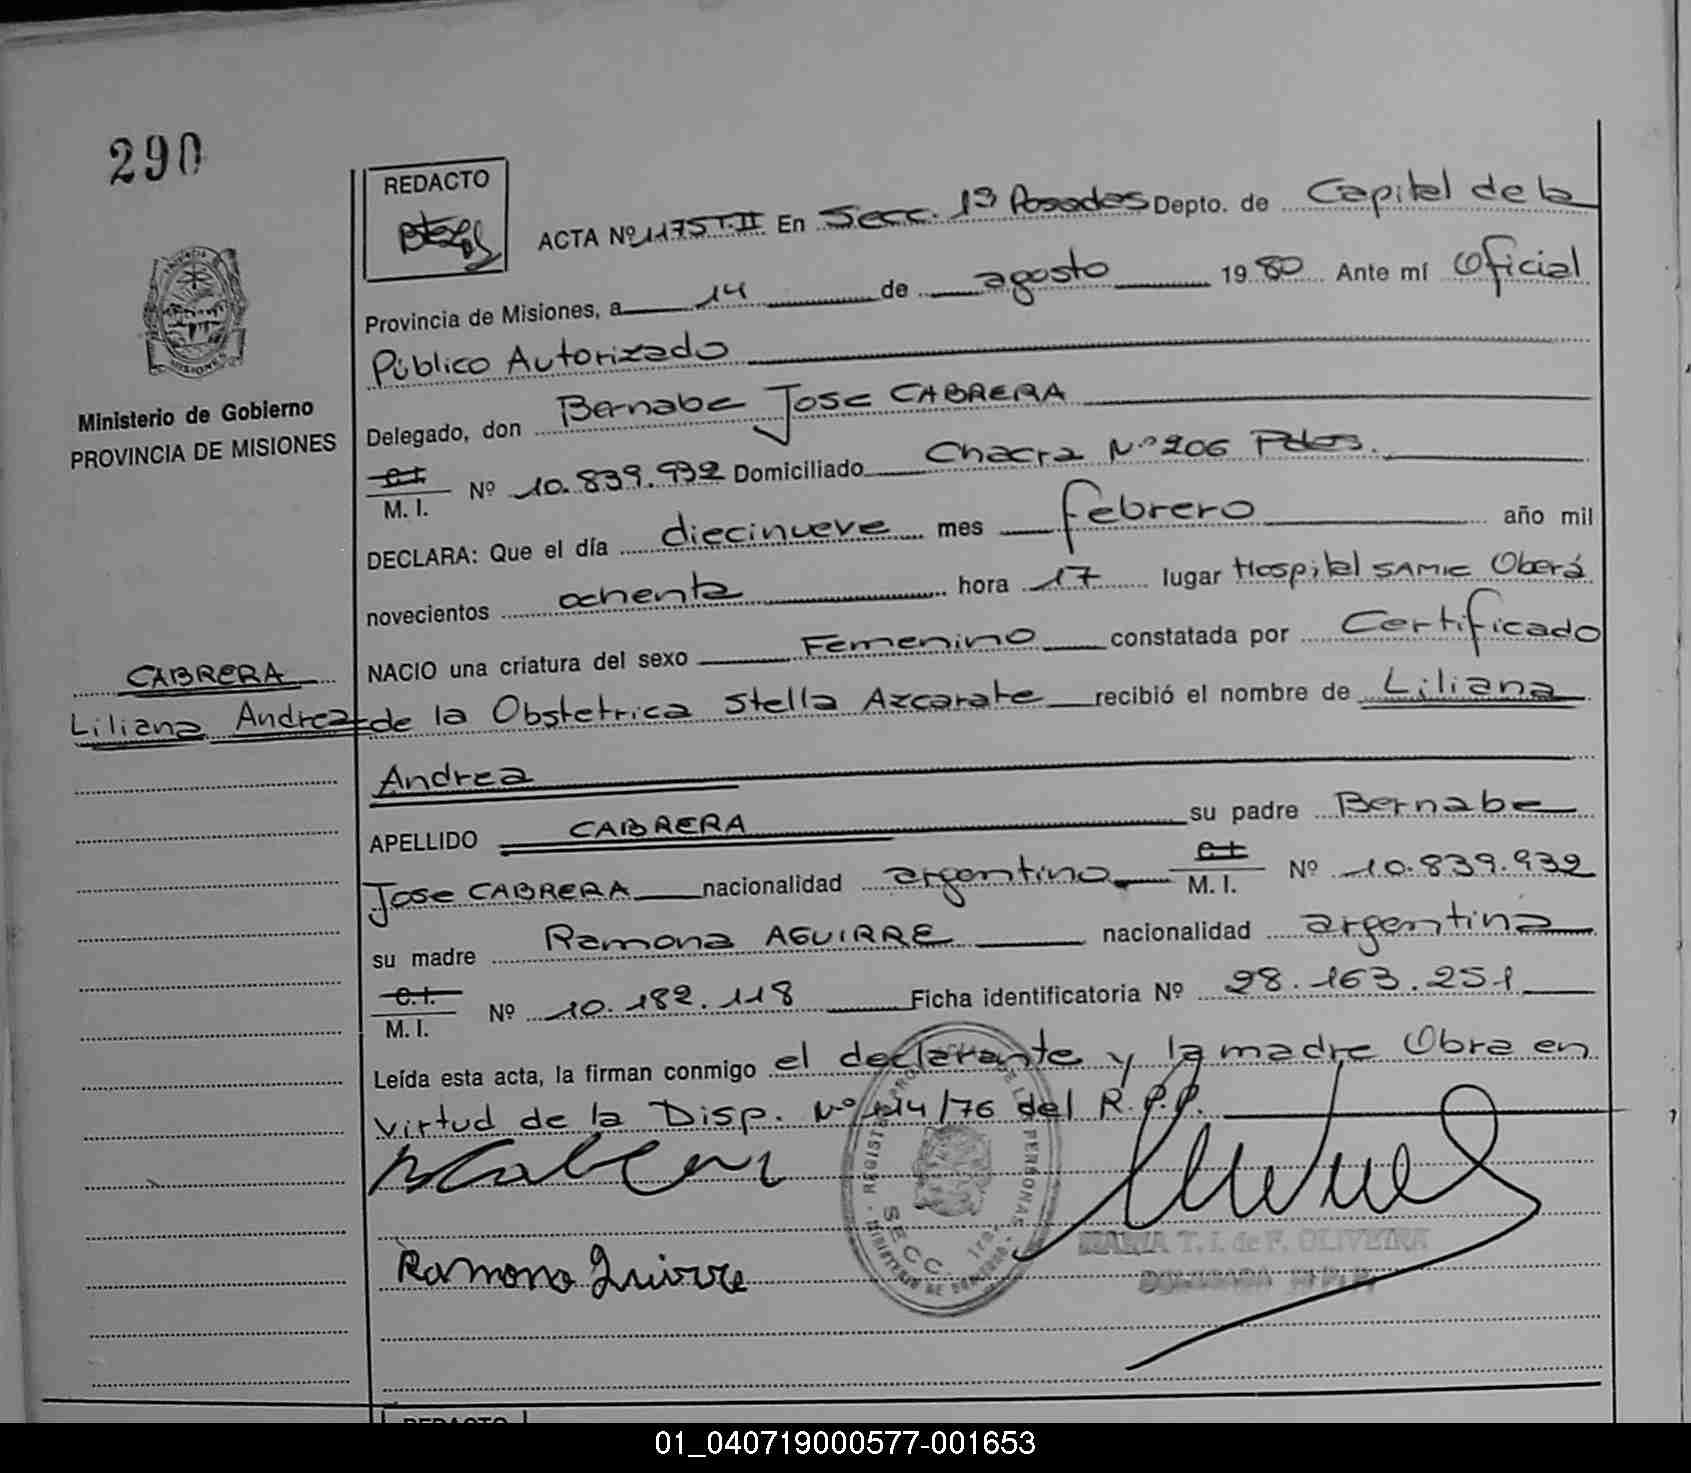 290
REDACTO
ACTA Nº 1175 T.II En Secc. 1ª Posadas Depto. de Capital de la
Provincia de Misiones, a 14 de agosto 1980 Ante mí Oficial
Público Autorizado
Ministerio de Gobierno
PROVINCIA DE MISIONES
Delegado, don Bernabe Jose CABRERA
C.I.
M. I. Nº 10.839.932 Domiciliado Chacra Nº 206 Pdas.
DECLARA: Que el día diecinueve mes febrero año mil
novecientos ochenta hora 17 lugar Hospital SAMIC Oberá
NACIO una criatura del sexo Femenino constatada por Certificado
CABRERA
Liliana Andrea
de la Obstetrica Stella Azcarate recibió el nombre de Liliana
Andrea
APELLIDO CABRERA su padre Bernabe
Jose CABRERA nacionalidad argentino C.I. M. I. Nº 10.839.932
su madre Ramona AGUIRRE nacionalidad argentina
C.I.
M. I. Nº 10.182.118 Ficha identificatoria Nº 28.163.251
Leída esta acta, la firman conmigo el declarante y la madre Obra en
virtud de la Disp. Nº 114/76 del R.P.P.
MARIA T. I. de F. OLIVEIRA
DELEGADA R.P.P.
SECC. 1ra.
REDACTO
01_040719000577-001653